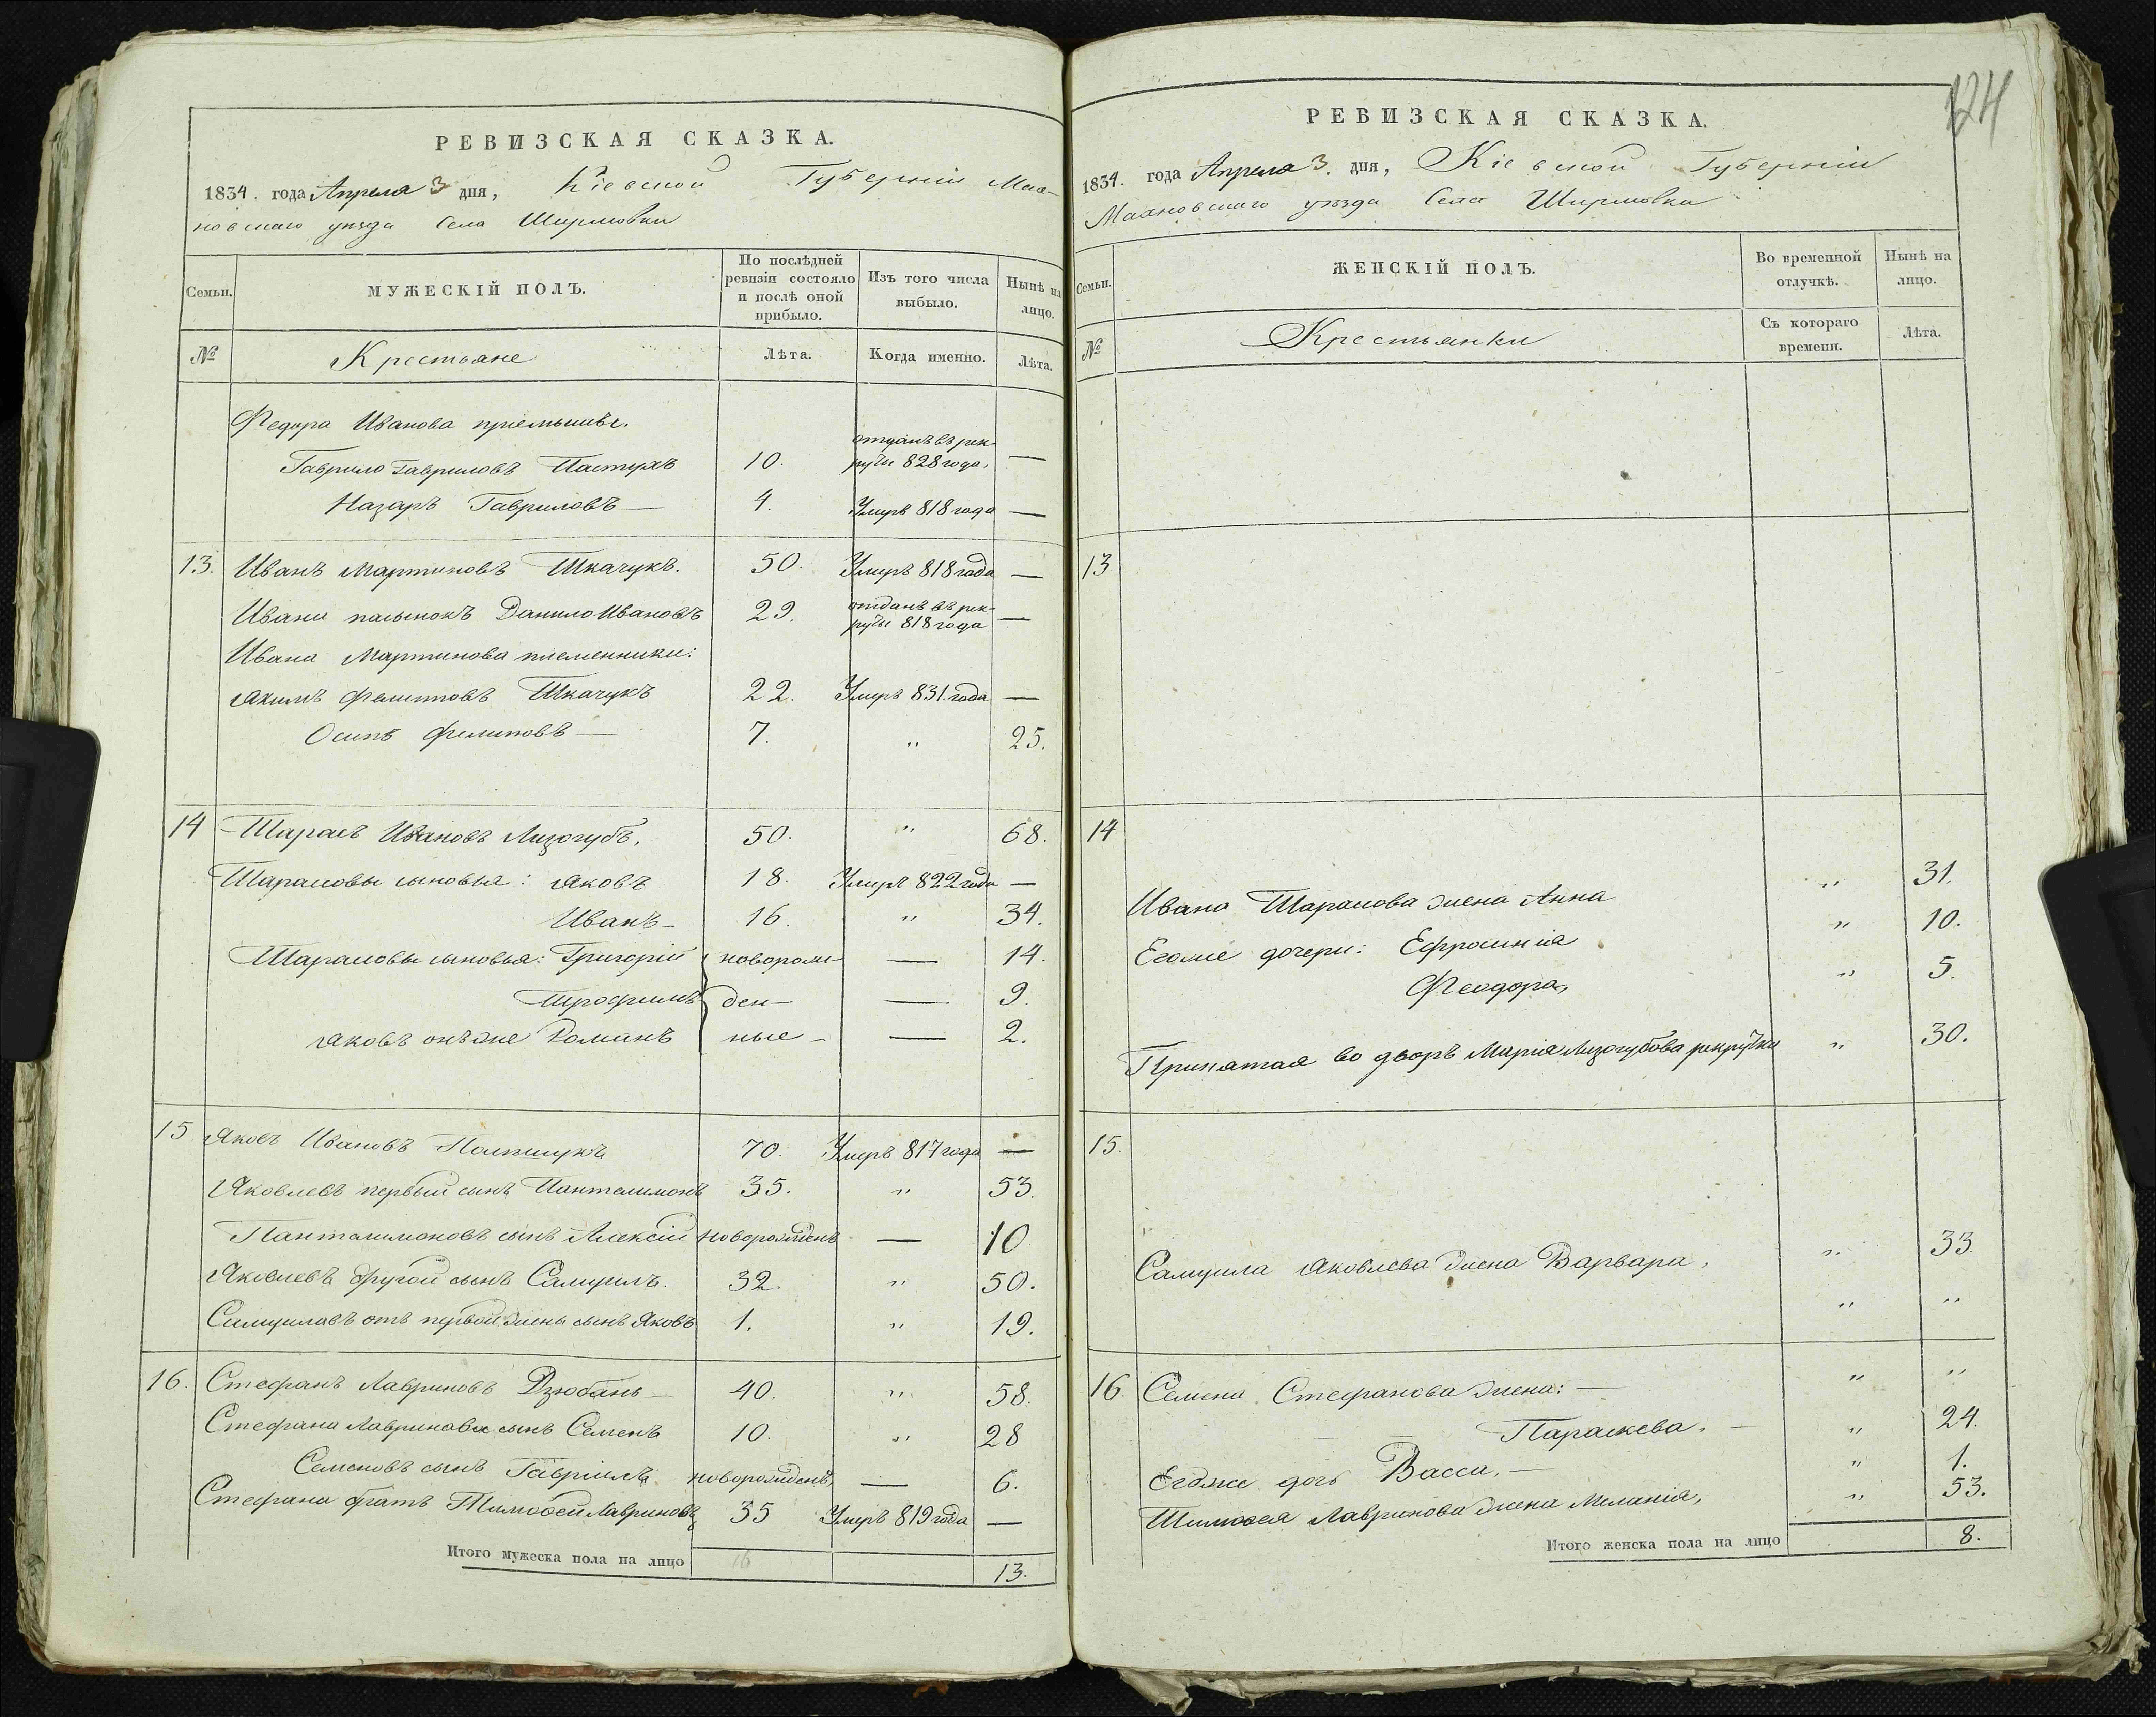 РЕВИЗСКАЯ СКАЗКА.
1834. года Апреля 3 дня, Кіевской Губерніи Мах-
новскаго уѣзда Села Ширмовки
Семьи.
МУЖЕСКІЙ ПОЛЪ.
По послѣдней ревизіи состояло и послѣ оной прибыло.
Изъ того числа выбыло.
Нынѣ на лицо.
№ Крестьяне Лѣта. Когда именно. Лѣта.
Федора Иванова приемыши.
Гаврило Гавриловъ Пастухъ 10. отданъ въ рек-
руты 828 года. —
Назаръ Гавриловъ — 4. Умеръ 818 года —
13. Иванъ Мартиновъ Ткачукъ. 50. Умеръ 818 года —
Ивана пасынокъ Данило Ивановъ 29. отданъ въ рек-
руты 818 года —
Ивана Мартинова племенники:
Якимъ Филиповъ Ткачукъ 22. Умеръ 831. года —
Осипъ Филиповъ — 7. " 25.
14 Тарасъ Ивановъ Лизогубъ. 50. " 68.
Тарасовы сыновья: Яковъ 18. Умеръ 822 года —
Иванъ — 16. " 34.
Тарасовы сыновья: Григорій новорож- — 14.
Трофимъ ден- — 9.
Яковъ онъ же Романъ ные — — 2.
15 Яковъ Ивановъ Полищукъ 70. Умеръ 817 года —
Яковлевъ первый сынъ Пантелимонъ 35. " 53.
Панталимоновъ сынъ Алексій новорожденъ — 10
Яковлевъ другой сынъ Самуилъ. 32. " 50.
Самуиловъ отъ первой жены сынъ Яковъ 1. " 19.
16. Стефанъ Лавриновъ Дзюбань — 40. " 58.
Стефана Лавринова сынъ Семенъ 10. " 28
Семеновъ сынъ Гавріилъ новорожденъ, — 6.
Стефана братъ Тимофей Лавриновъ 35 Умеръ 819 года —
Итого мужеска пола на лицо 16 13.
124
РЕВИЗСКАЯ СКАЗКА.
1834. года Апреля 3. дня, Кіевской Губерніи
Махновскаго уѣзда Села Ширмовки
Семьи.
ЖЕНСКІЙ ПОЛЪ.
Во временной отлучкѣ.
Нынѣ на лицо.
№ Крестьянки Съ котораго времени. Лѣта.
13
14
Ивана Тарасова жена Анна " 31.
Егоже дочери: Ефросинія " 10.
Феодора, " 5.
Принятая во дворъ Марія Лизогубова рекрутка " 30.
15.
Самуила Яковлева жена Варвара, " 33.
" "
16. Семена Стефанова жена: — " "
Параскева. — " 24.
Егоже дочь Васса, — " 1.
Тимофея Лавринова жена Меланія, " 53.
Итого женска пола на лицо 8.